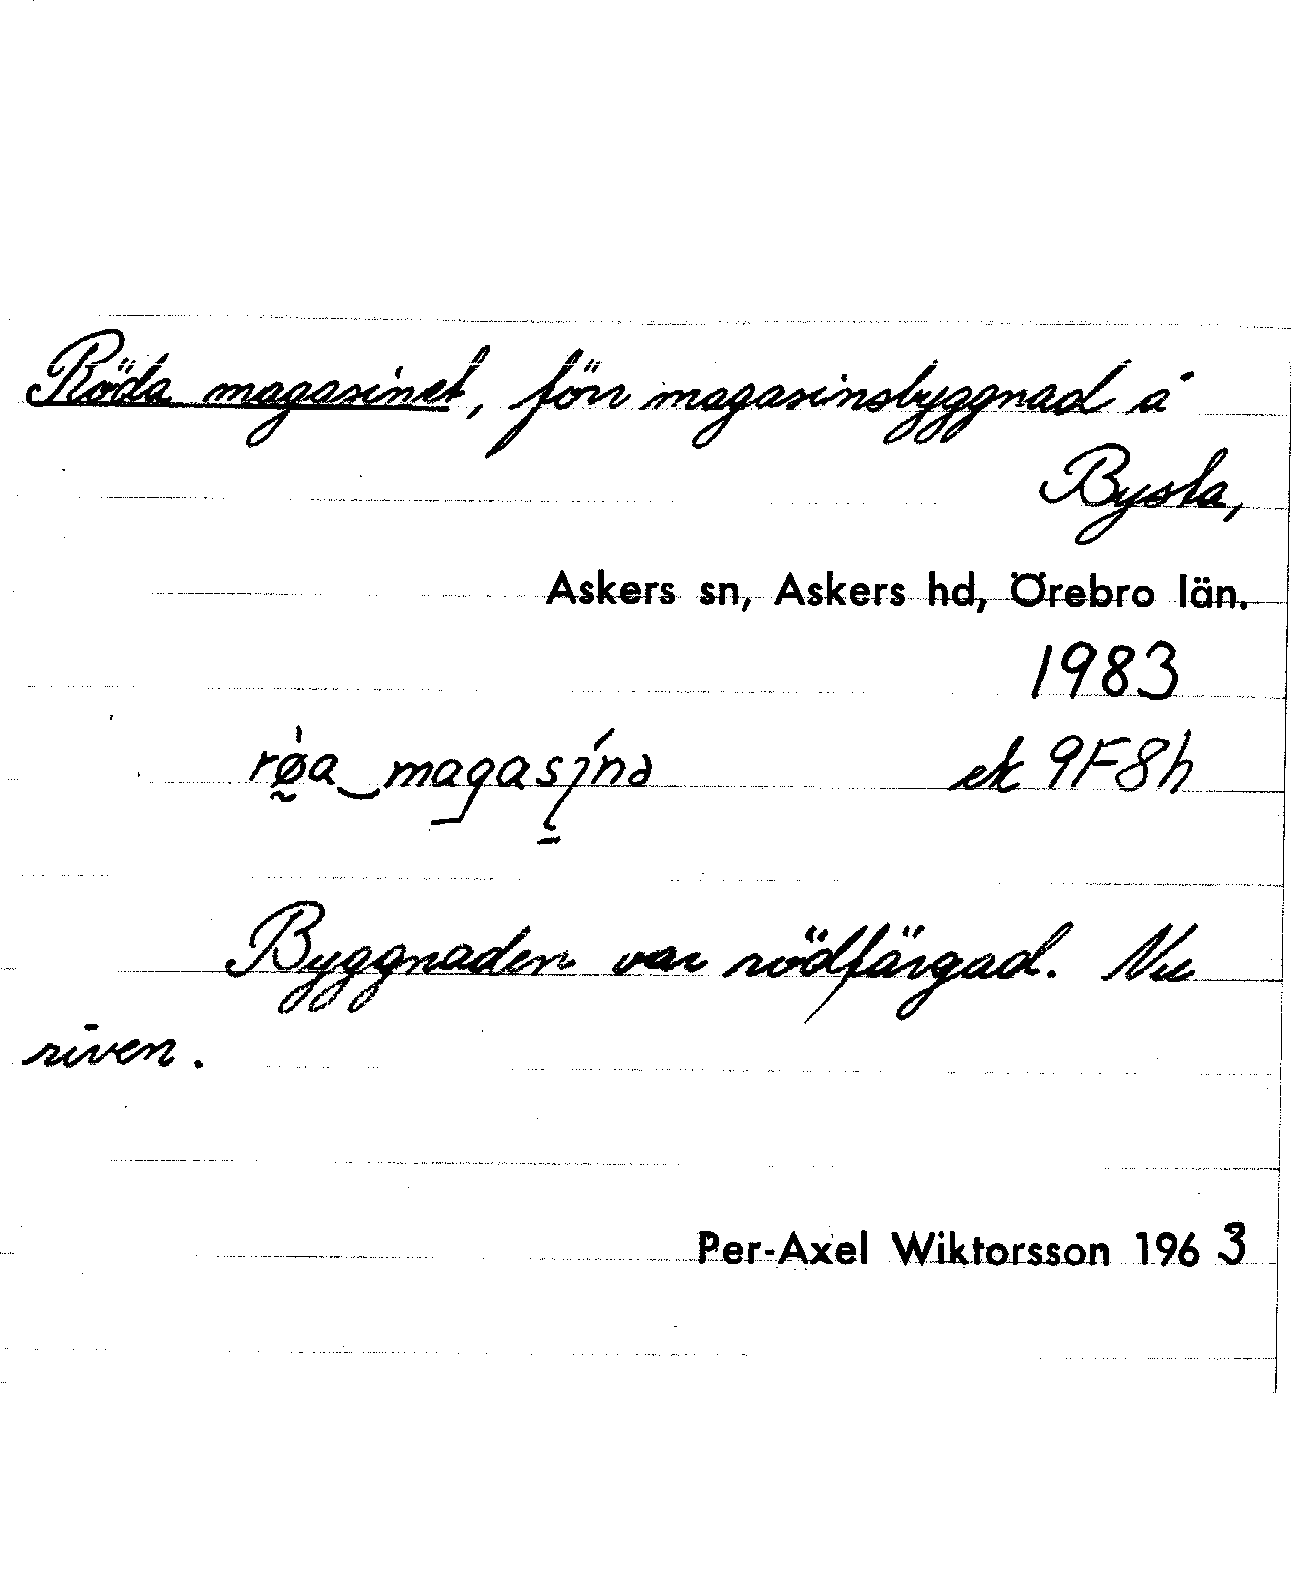 Röda magasinet, förr magasinsbyggnad å
Bysta,
Askers sn, Askers hd, Örebro län.
1983
røa magasinə ek 9F8h
Byggnaden var rödfärgad. Nu
riven.
Per-Axel Wiktorsson 1963